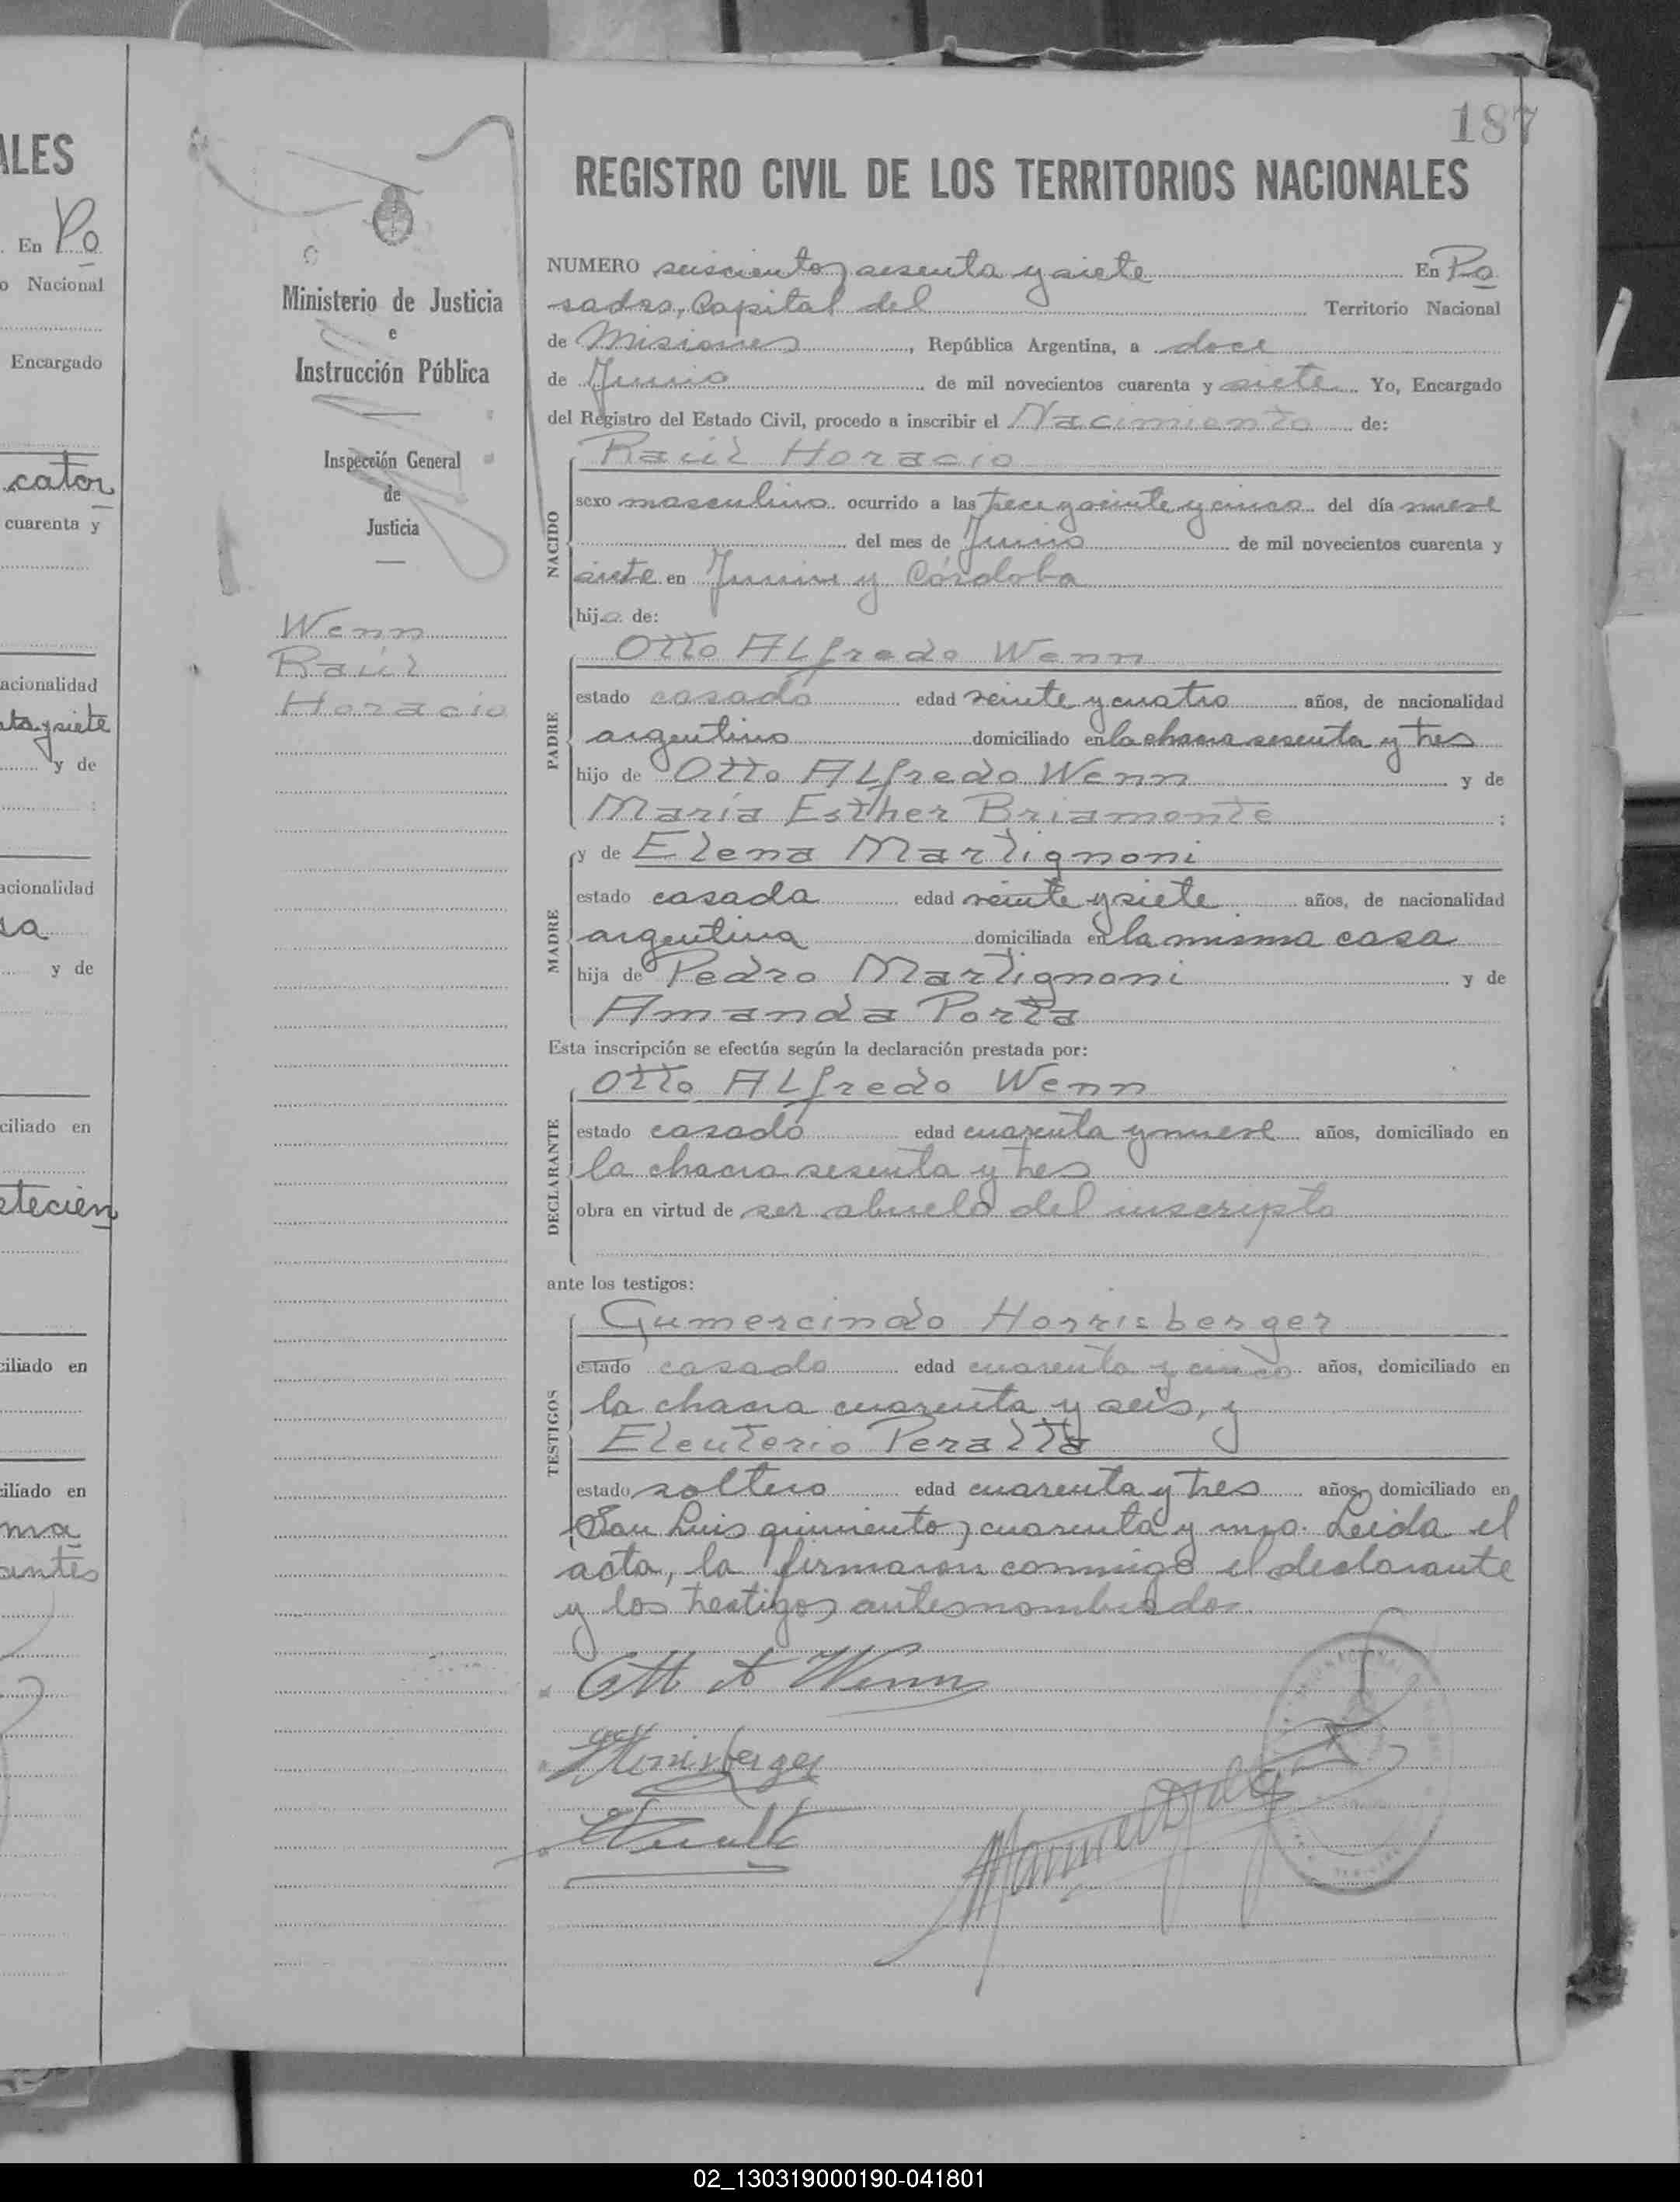 187
REGISTRO CIVIL DE LOS TERRITORIOS NACIONALES
Ministerio de Justicia
e
Instrucción Pública
Inspección General
de
Justicia
Wenn
Raúl
Horacio
NUMERO seiscientos sesenta y siete En Po
sadas, Capital del Territorio Nacional
de Misiones, República Argentina, a doce
de Junio de mil novecientos cuarenta y siete Yo, Encargado
del Registro del Estado Civil, procedo a inscribir el Nacimiento de:
NACIDO
Raúl Horacio
sexo masculino ocurrido a las trece y veinte y cinco del día nueve
del mes de Junio de mil novecientos cuarenta y
siete en Junin y Córdoba
hijo de:
PADRE
Otto Alfredo Wenn
estado casado edad veinte y cuatro años, de nacionalidad
argentino domiciliado en la chacra sesenta y tres
hijo de Otto Alfredo Wenn y de
María Esther Briamonte ;
MADRE
y de Elena Martignoni
estado casada edad veinte y siete años, de nacionalidad
argentina domiciliada en la misma casa
hija de Pedro Martignoni y de
Amanda Porta
Esta inscripción se efectúa según la declaración prestada por:
DECLARANTE
Otto Alfredo Wenn
estado casado edad cuarenta y nueve años, domiciliado en
la chacra sesenta y tres
obra en virtud de ser abuelo del inscripto
ante los testigos:
TESTIGOS
Gumercindo Horrisberger
estado casado edad cuarenta y cinco años, domiciliado en
la chacra cuarenta y seis, y
Eleuterio Peralta
estado soltero edad cuarenta y tres años, domiciliado en
San Luis quinientos cuarenta y uno. Leida el
acta, la firmaron conmigo el declarante
y los testigos antesnombrados.
Otto A Wenn
02_130319000190-041801